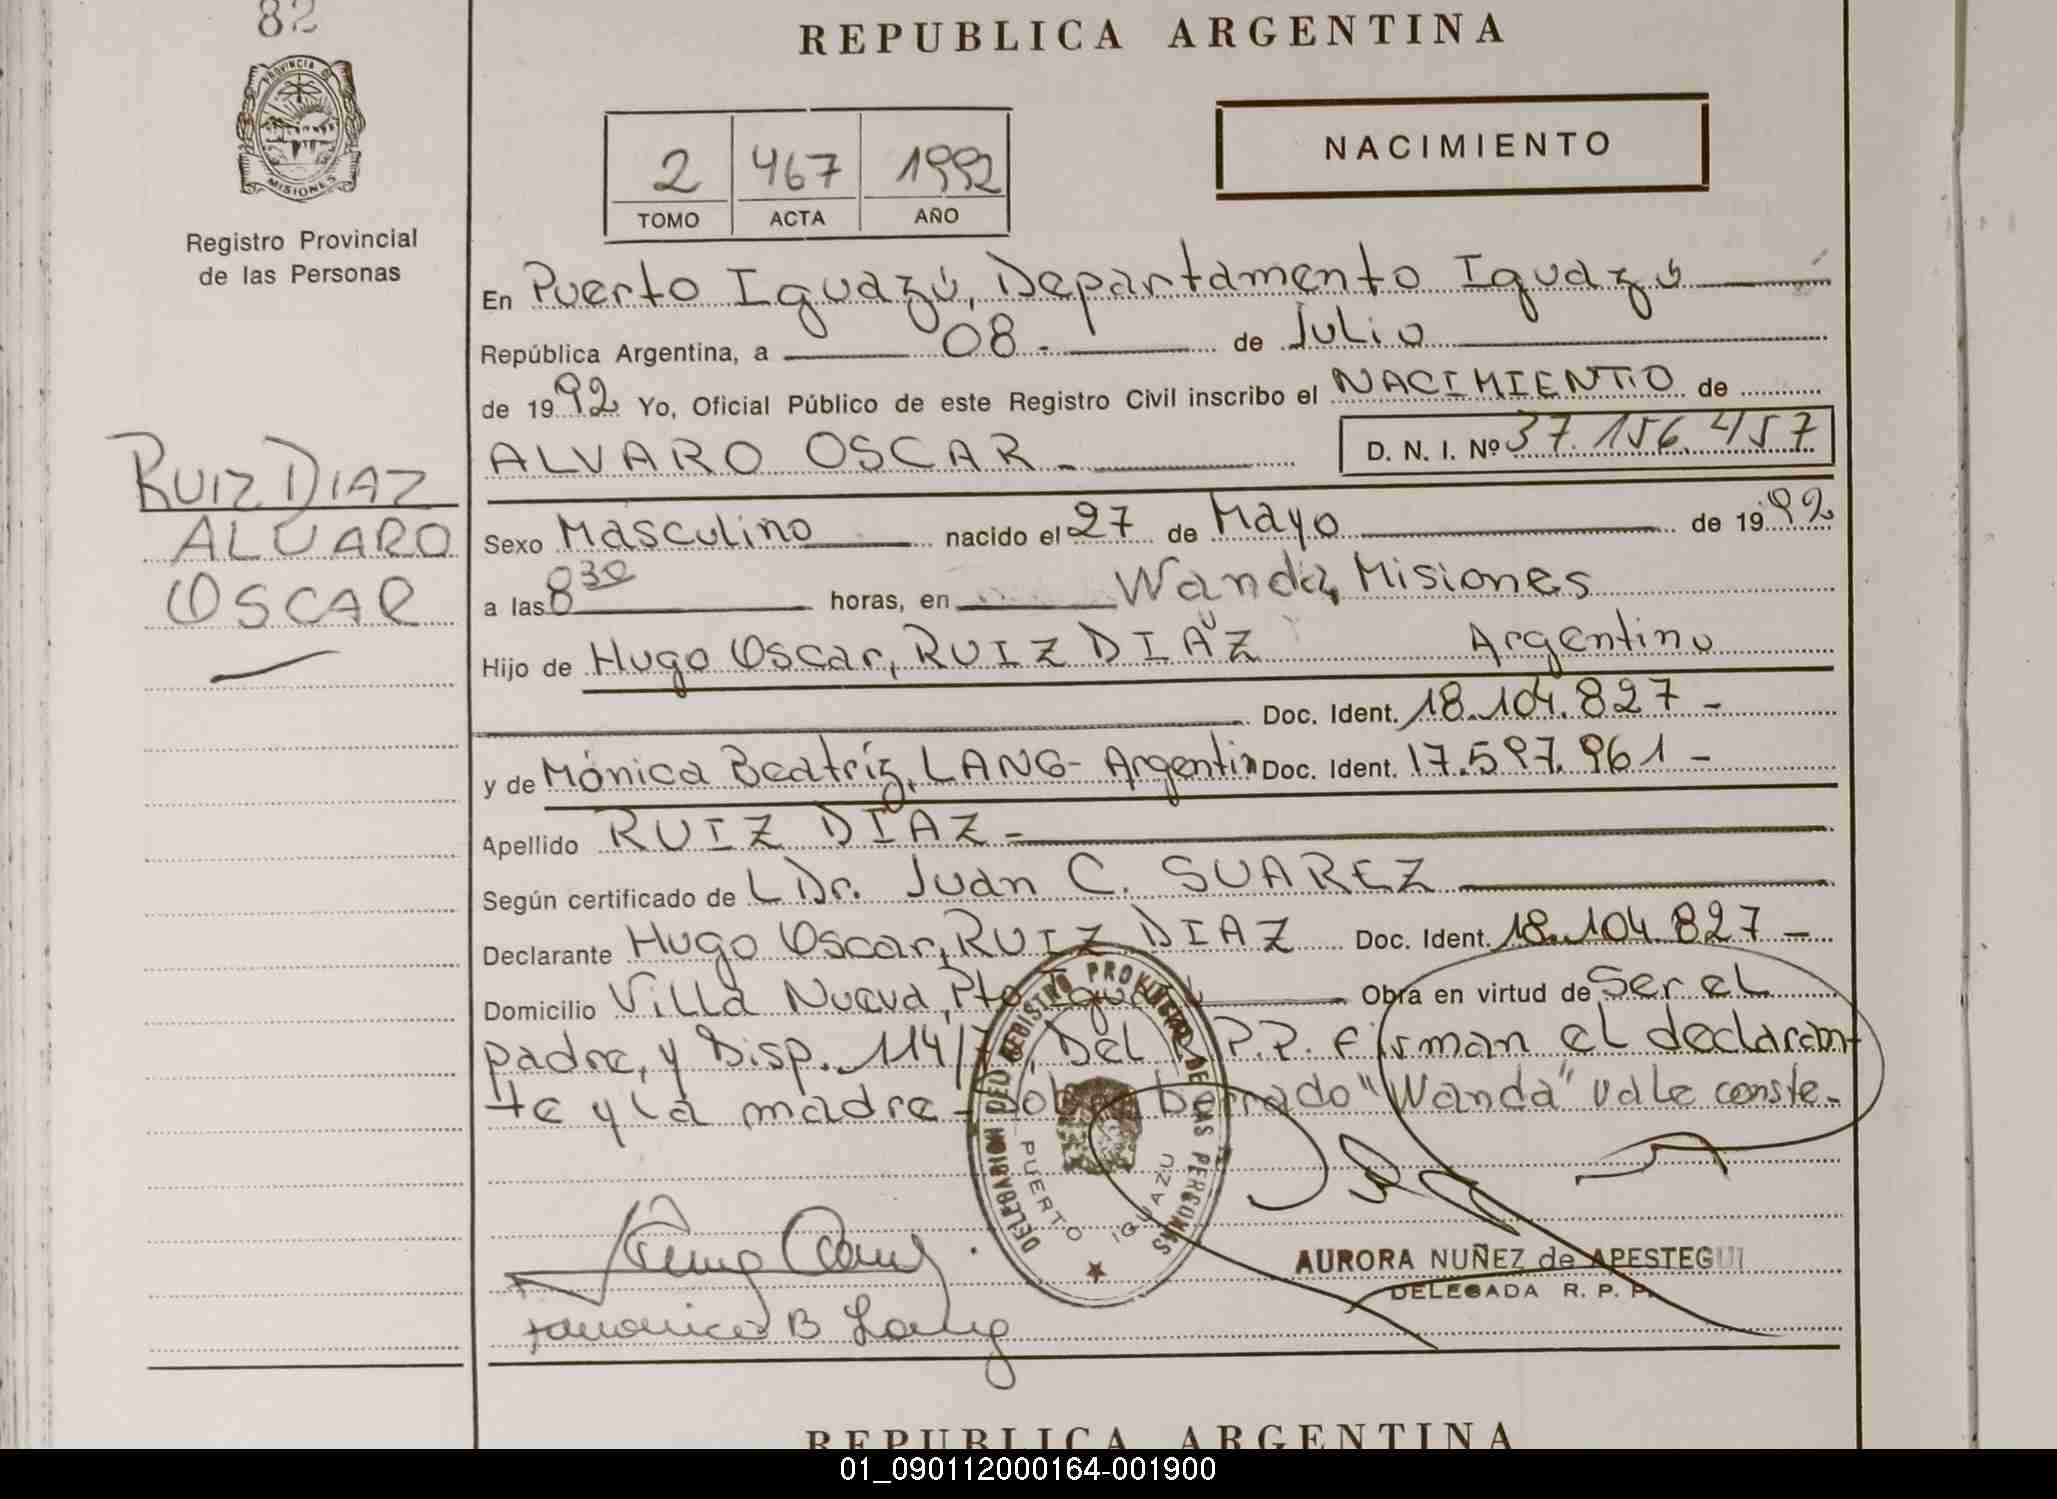 82
REPUBLICA ARGENTINA
PROVINCIA DE
MISIONES
Registro Provincial
de las Personas
2 467 1992
TOMO ACTA AÑO
NACIMIENTO
En Puerto Iguazú, Departamento Iguazú
República Argentina, a 08.- de Julio
de 1992 Yo, Oficial Público de este Registro Civil inscribo el NACIMIENTO de
ALVARO OSCAR.- D. N. I. Nº 37.156.457
RUIZ DIAZ
ALVARO
OSCAR
Sexo Masculino nacido el 27 de Mayo de 1992
a las 8 30 horas, en Wanda, Misiones
Hijo de Hugo Oscar, RUIZ DIAZ Argentino
Doc. Ident. 18.104.827-
y de Mónica Beatríz, LANG- Argentin Doc. Ident. 17.597.961-
Apellido RUIZ DIAZ-
Según certificado de L Dr. Juan C. SUAREZ
Declarante Hugo Oscar, RUIZ DIAZ Doc. Ident. 18.104.827-
Domicilio Villa Nueva, Pto Iguazú Obra en virtud de Ser el
padre, y Disp. 114/ Del R.P.P. Firman el declaran-
te y la madre- Sobre borrado "Wanda" vale conste-
DELEGACION DEL REGISTRO PROVINCIAL DE LAS PERSONAS
PUERTO IGUAZU
B Lang
AURORA NUÑEZ de APESTEGUI
DELEGADA R. P. P.
REPUBLICA ARGENTINA
01_090112000164-001900